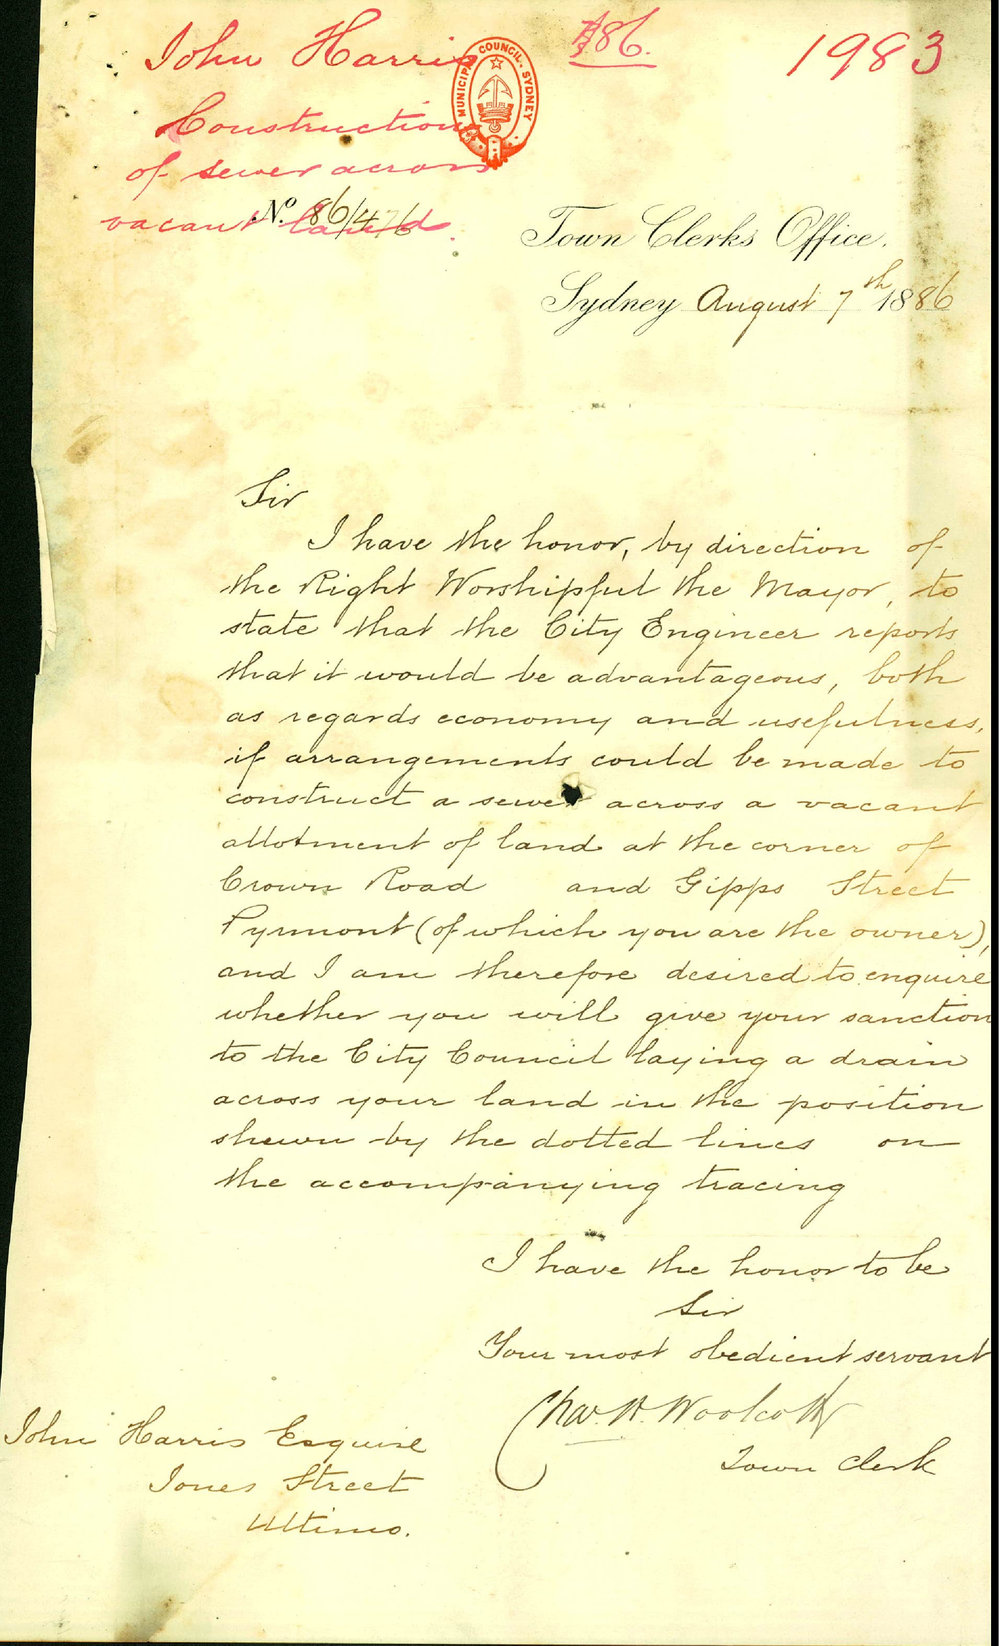 John Harris
Construction
of sewer across
vacant land.
86.
1983
MUNICIPAL COUNCIL. SYDNEY
No. 86/476
Town Clerks Office.
Sydney August 7th 1886
Sir
I have the honor, by direction of
the Right Worshipful the Mayor, to
state that the City Engineer reports
that it would be advantageous, both
as regards economy and usefulness,
if arrangements could be made to
construct a sewer across a vacant
allotment of land at the corner of
Crown Road and Gipps Street
Pyrmont (of which you are the owner),
and I am therefore desired to enquire
whether you will give your sanction
to the City Council laying a drain
across your land in the position
shewn by the dotted lines on
the accompanying tracing
I have the honor to be
Sir
Your most obedient servant
Chas. H. Woolcott
Town Clerk
John Harris Esquire
Jones Street
Ultimo.